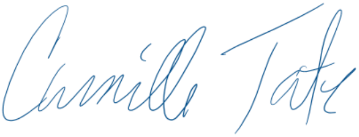 Camille Tate